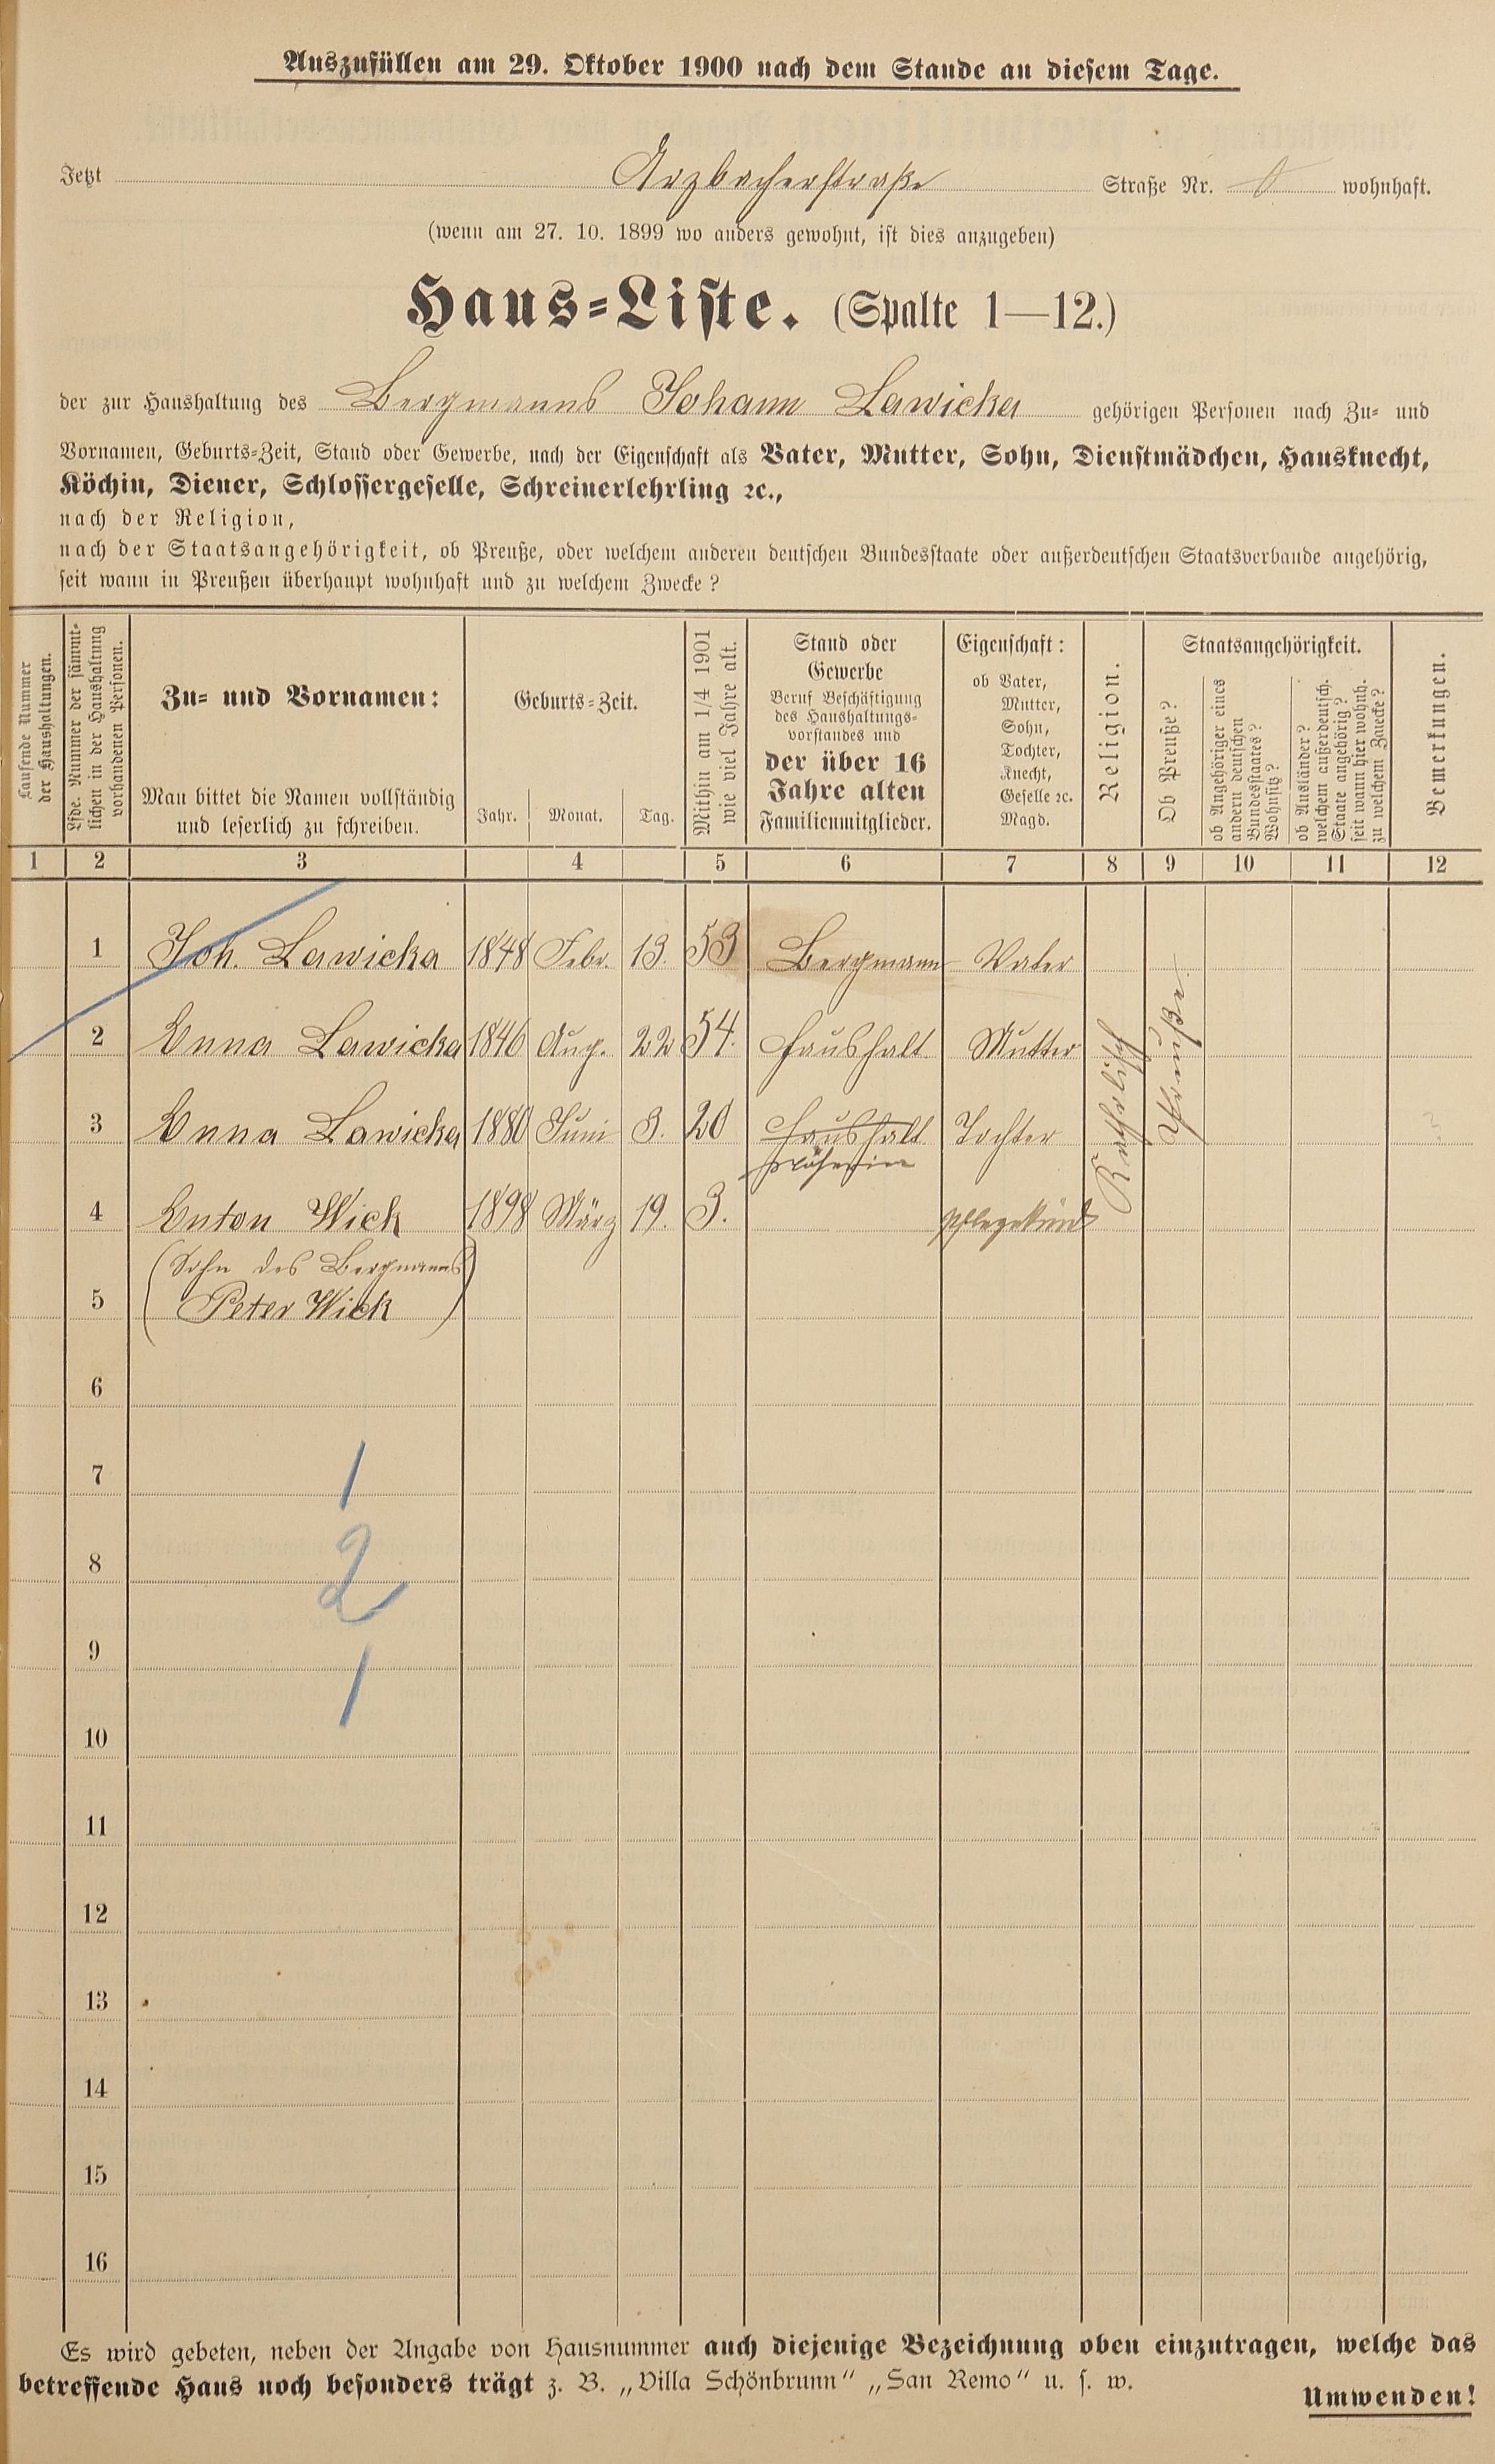 Auszufüllen am 29. Oktober 1900 nach dem Stande an diesem Tage.
Jetzt Arzbacherstraße Straße Nr. 8 wohnhaft.
(wenn am 27. 10. 1899 wo anders gewohnt, ist dies anzugeben)
Haus-Liste. (Spalte 1—12.)
der zur Haushaltung des Bergmanns Johann Lawicka gehörigen Personen nach Zu- und
Vornamen, Geburts-Zeit, Stand oder Gewerbe, nach der Eigenschaft als Vater, Mutter, Sohn, Dienstmädchen, Hausknecht,
Köchin, Diener, Schlossergeselle, Schreinerlehrling ꝛc.,
nach der Religion,
nach der Staatsangehörigkeit, ob Preuße, oder welchem anderen deutschen Bundesstaate oder außerdeutschen Staatsverbande angehörig,
seit wann in Preußen überhaupt wohnhaft und zu welchem Zwecke?
Laufende Nummer
der Haushaltungen.
Lfde. Nummer der sämmt-
lichen in der Haushaltung
vorhandenen Personen.
Zu- und Vornamen:
Man bittet die Namen vollständig
und leserlich zu schreiben.
Geburts-Zeit.
Jahr. Monat. Tag.
Mithin am 1/4 1901
wie viel Jahre alt.
Stand oder
Gewerbe
Beruf Beschäftigung
des Haushaltungs-
vorstandes und
der über 16
Jahre alten
Familienmitglieder.
Eigenschaft:
ob Vater,
Mutter,
Sohn,
Tochter,
Knecht,
Geselle ꝛc.
Magd.
Religion.
Staatsangehörigkeit.
Ob Preuße?
ob Angehöriger eines
andern deutschen
Bundesstaates?
Wohnsitz?
ob Ausländer?
welchem außerdeutsch.
Staate angehörig?
seit wann hier wohnh.
zu welchem Zwecke?
Bemerkungen.
1 2 3 4 5 6 7 8 9 10 11 12
1 Joh. Lawicka 1848 Febr. 13. 53 Bergmann Vater
2 Anna Lawicka 1846 Aug. 22 54. Haushalt Mutter
3 Anna Lawicka 1880 Juni 3. 20 Haushalt Tochter
Näherin
Katholisch
Preuße.
4 Anton Wick 1898 März 19. 3. Pflegekind
(Sohn des Bergmanns
5 Peter Wick)
6
7 1
8 2
9 1
10
11
12
13
14
15
16
Es wird gebeten, neben der Angabe von Hausnummer auch diejenige Bezeichnung oben einzutragen, welche das
betreffende Haus noch besonders trägt z. B. „Villa Schönbrunn“ „San Remo“ u. s. w.
Umwenden!